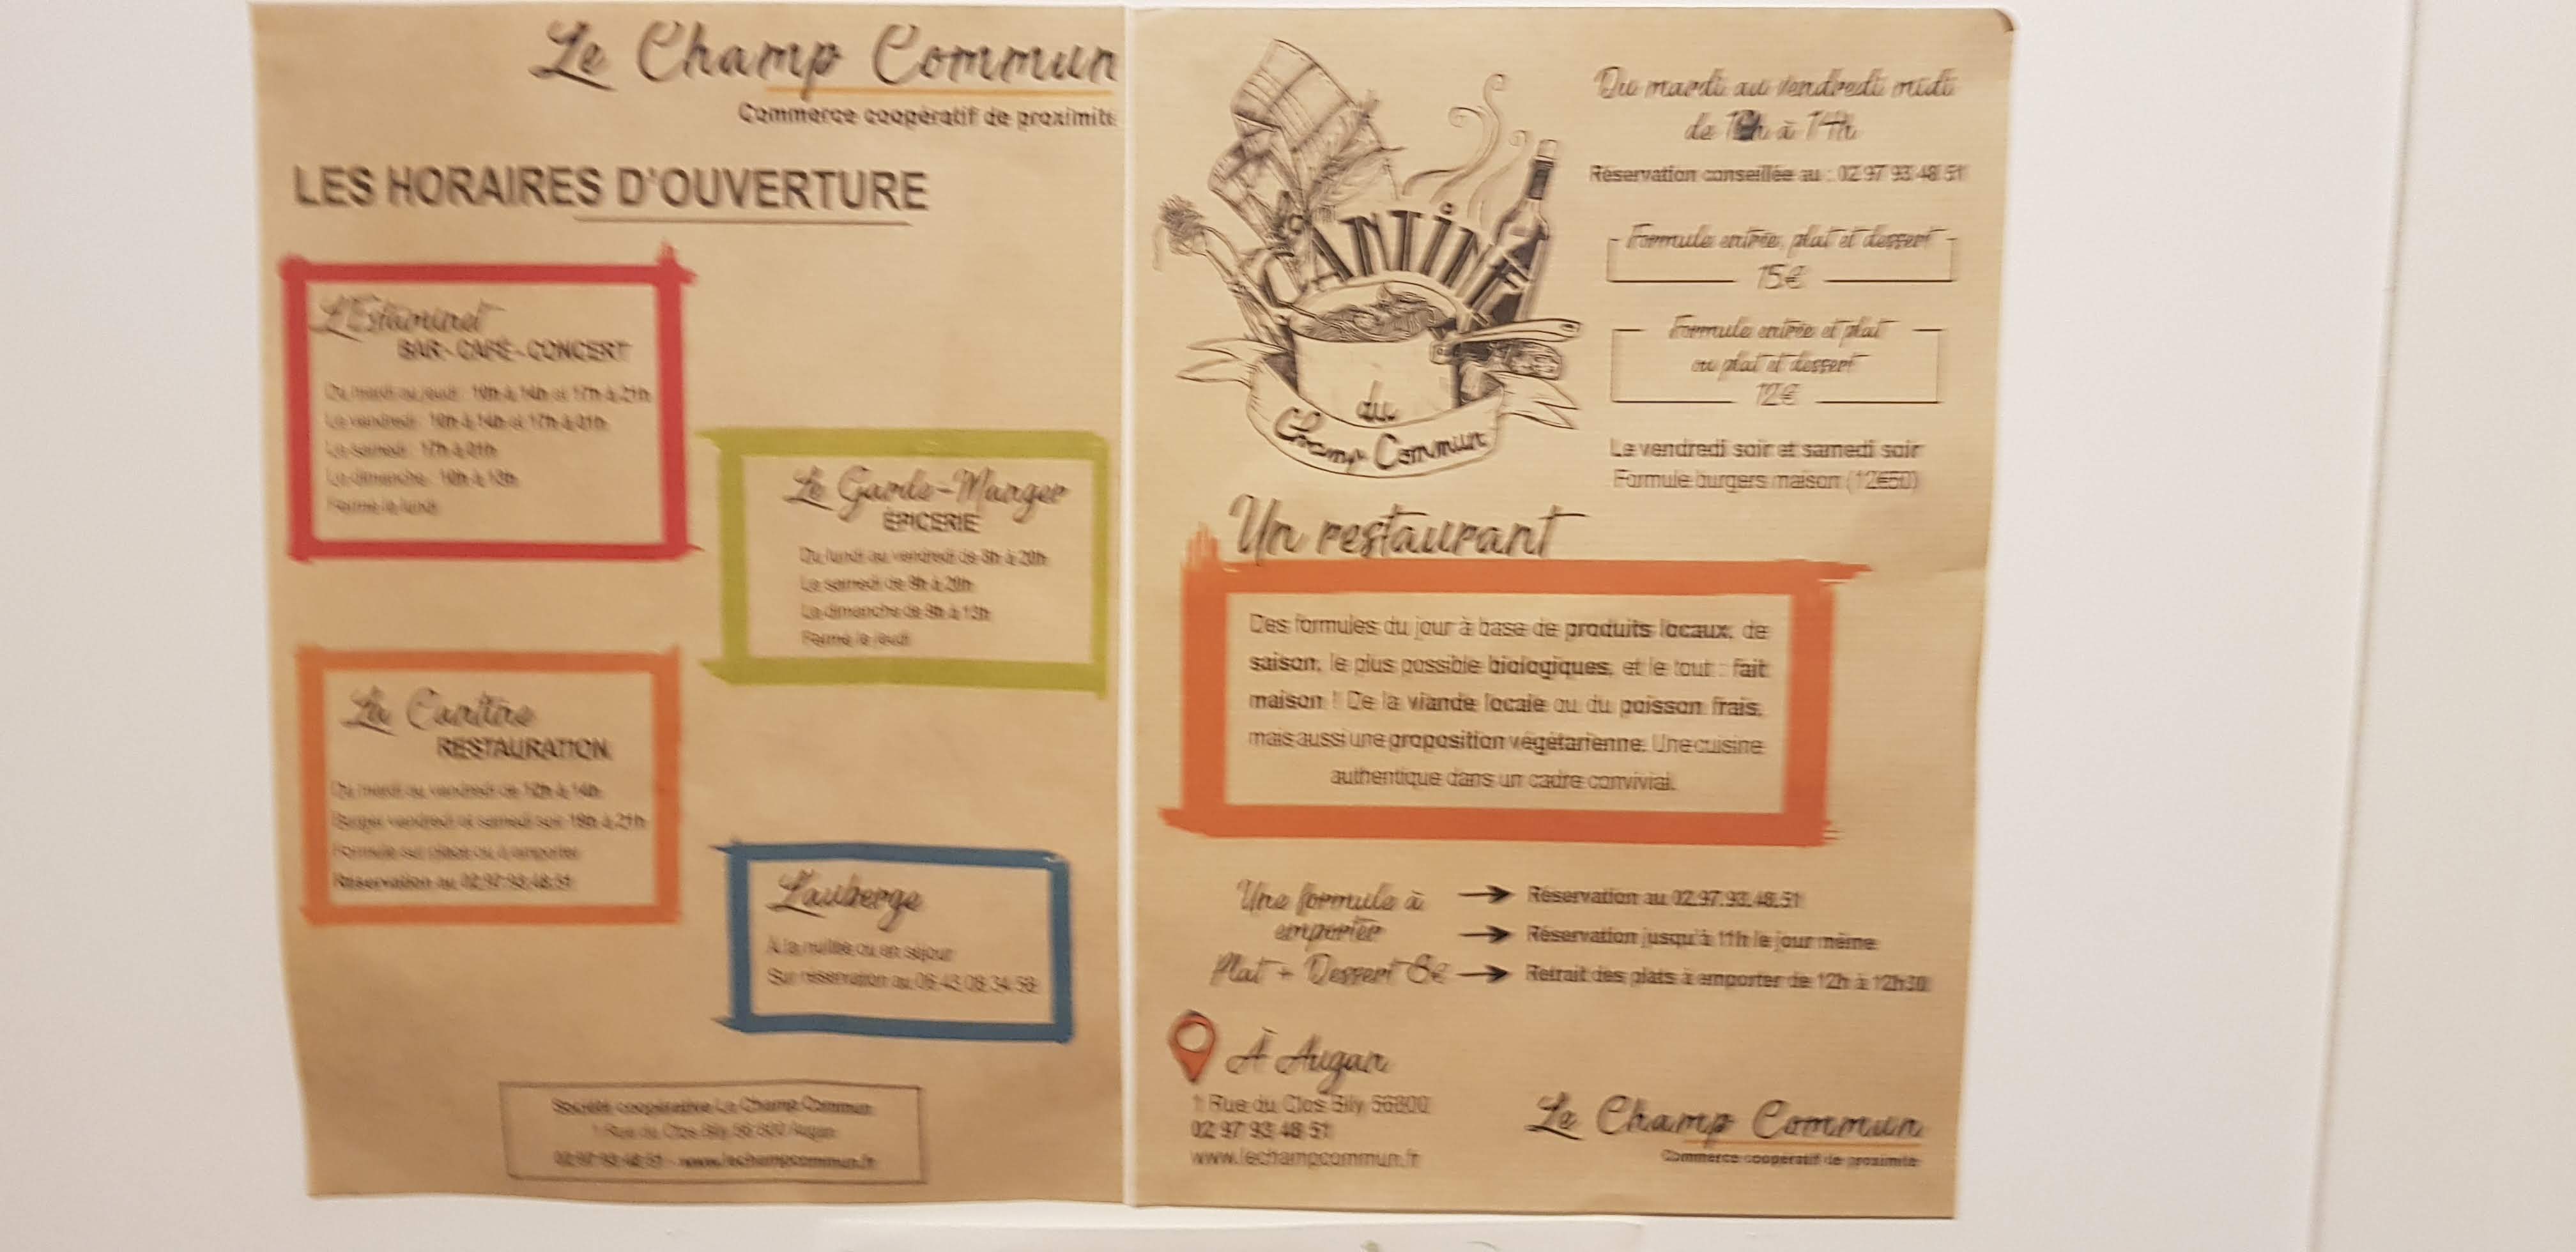 Le Champ Commun
Commerce coopératif de proximité
LES HORAIRES D'OUVERTURE
L'Estaminet
BAR - CAFÉ - CONCERT
Du mardi au jeudi : 10h à 14h et 17h à 21h
Le vendredi : 10h à 14h et 17h à 01h
Le samedi : 17h à 01h
Le dimanche : 10h à 13h
Fermé le lundi
Le Garde-Manger
ÉPICERIE
Du lundi au vendredi de 8h à 20h
Le samedi de 9h à 20h
Le dimanche de 9h à 13h
Fermé le jeudi
La Cantine
RESTAURATION
Du mardi au vendredi de 12h à 14h
Burger vendredi et samedi soir 19h à 21h
Formule sur place ou à emporter
Réservation au 02.97.93.48.51
L'auberge
À la nuitée ou en séjour
Sur réservation au 06.43.08.34.58
Société coopérative Le Champ Commun
1 Rue du Clos Billy 56 800 Augan
02.97.93.48.51 - www.lechampcommun.fr
CANTINE
du
Champ Commun
Du mardi au vendredi midi
de à 14h
Réservation conseillée au : 02 97 93 48 51
Formule entrée, plat et dessert
15€
Formule entrée et plat
ou plat et dessert
12€
Le vendredi soir et samedi soir
Formule burgers maison (12€50)
Un restaurant
Des formules du jour à base de produits locaux, de
saison, le plus possible biologiques, et le tout : fait
maison ! De la viande locale ou du poisson frais,
mais aussi une proposition végétarienne. Une cuisine
authentique dans un cadre convivial.
Une formule à
emporter
Plat + Dessert 8€
Réservation au 02.97.93.48.51
Réservation jusqu'à 11h le jour même
Retrait des plats à emporter de 12h à 12h30
À Augan
1 Rue du Clos Billy 56800
02 97 93 48 51
www.lechampcommun.fr
Le Champ Commun
Commerce coopératif de proximité